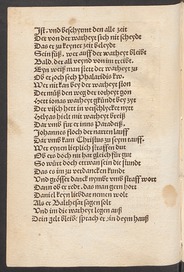 Ist vnd beschynnt den alle zeit
Der von der warheyt sich nit scheydt
Das er zu keyner zeit beleydt
Sein füß, wer auff der warheyt bleibt
Bald, der all veynd von im treibt.
Eyn weiß man stett der warheyt zu
Ob er sech sech Phalaridis
Wer nit kan bey der warheyt ston
Der muß den weg der
Hett Ionas warheyt kündt bey zyt
Der visch hett in verschlückt nyt
Helyas hielt mit warheyt
Dar vmb fur er ins Paradiß
Johannes floch der narren lauff
Dar vmb kam Christus zu seym tauff
Wer eynen lieplich straffen dut
Ob ers doch nit hat gleich für gut
So würt doch etwan sein die stundt
Das es im zu verdancken kundt
Vnd grösser danck vmb straff wort
Dann ob er redt das man gern hört
Daniel keyn nemen wolt
Als er Balthesar sagen solt
Vnd im die warheyt legen auß
Dein gelt bleib sprach er in deym hauß